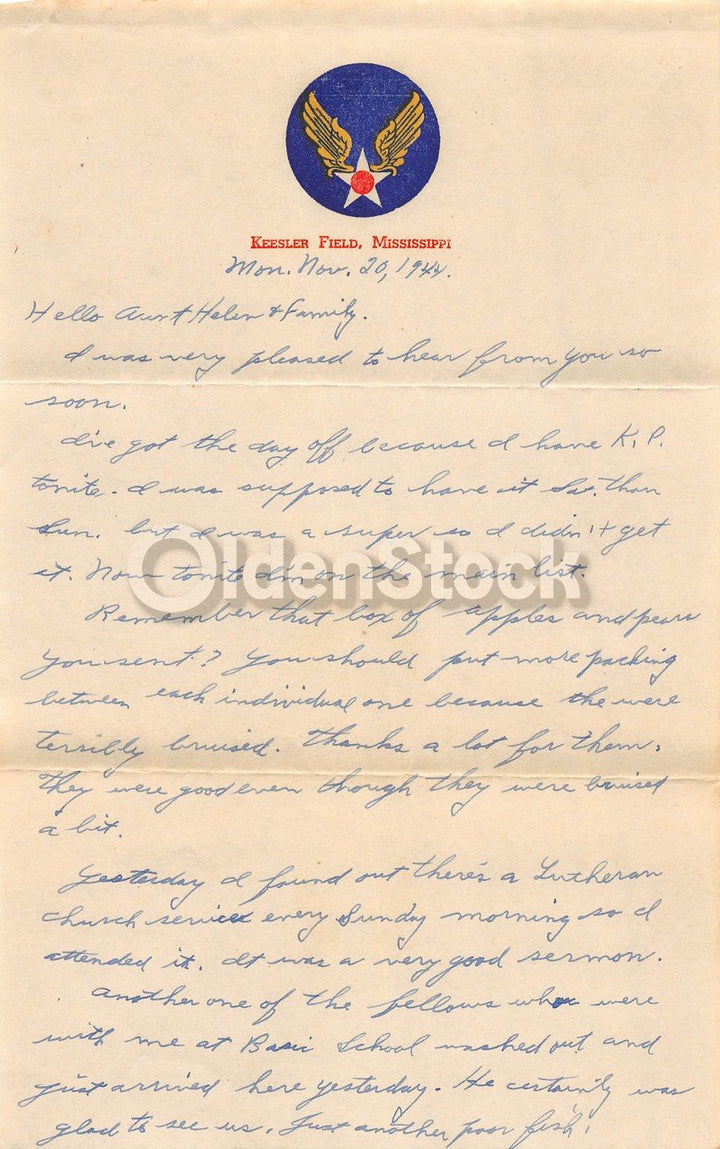 KEESLER FIELD, MISSISSIPPI
Mon. Nov. 20, 1944.
Hello Aunt Helen & Family.
I was very pleased to hear from you so
soon.
I've got the day off because I have K.P.
tonite. I was supposed to have it Sat. than
Sun. but I was a super so I didn't get
it. Now tonite I'm on the main list.
OldenStock
Remember that box of apples and pears
you sent? You should put more packing
between each individual one because the were
terribly bruised. Thanks a lot for them.
They were good even though they were bruised
a bit.
Yesterday I found out there's a Lutheran
church service every Sunday morning so I
attended it. It was a very good sermon.
Another one of the fellows who were
with me at Basic School washed out and
just arrived here yesterday. He certainly was
glad to see us. Just another poor fish.